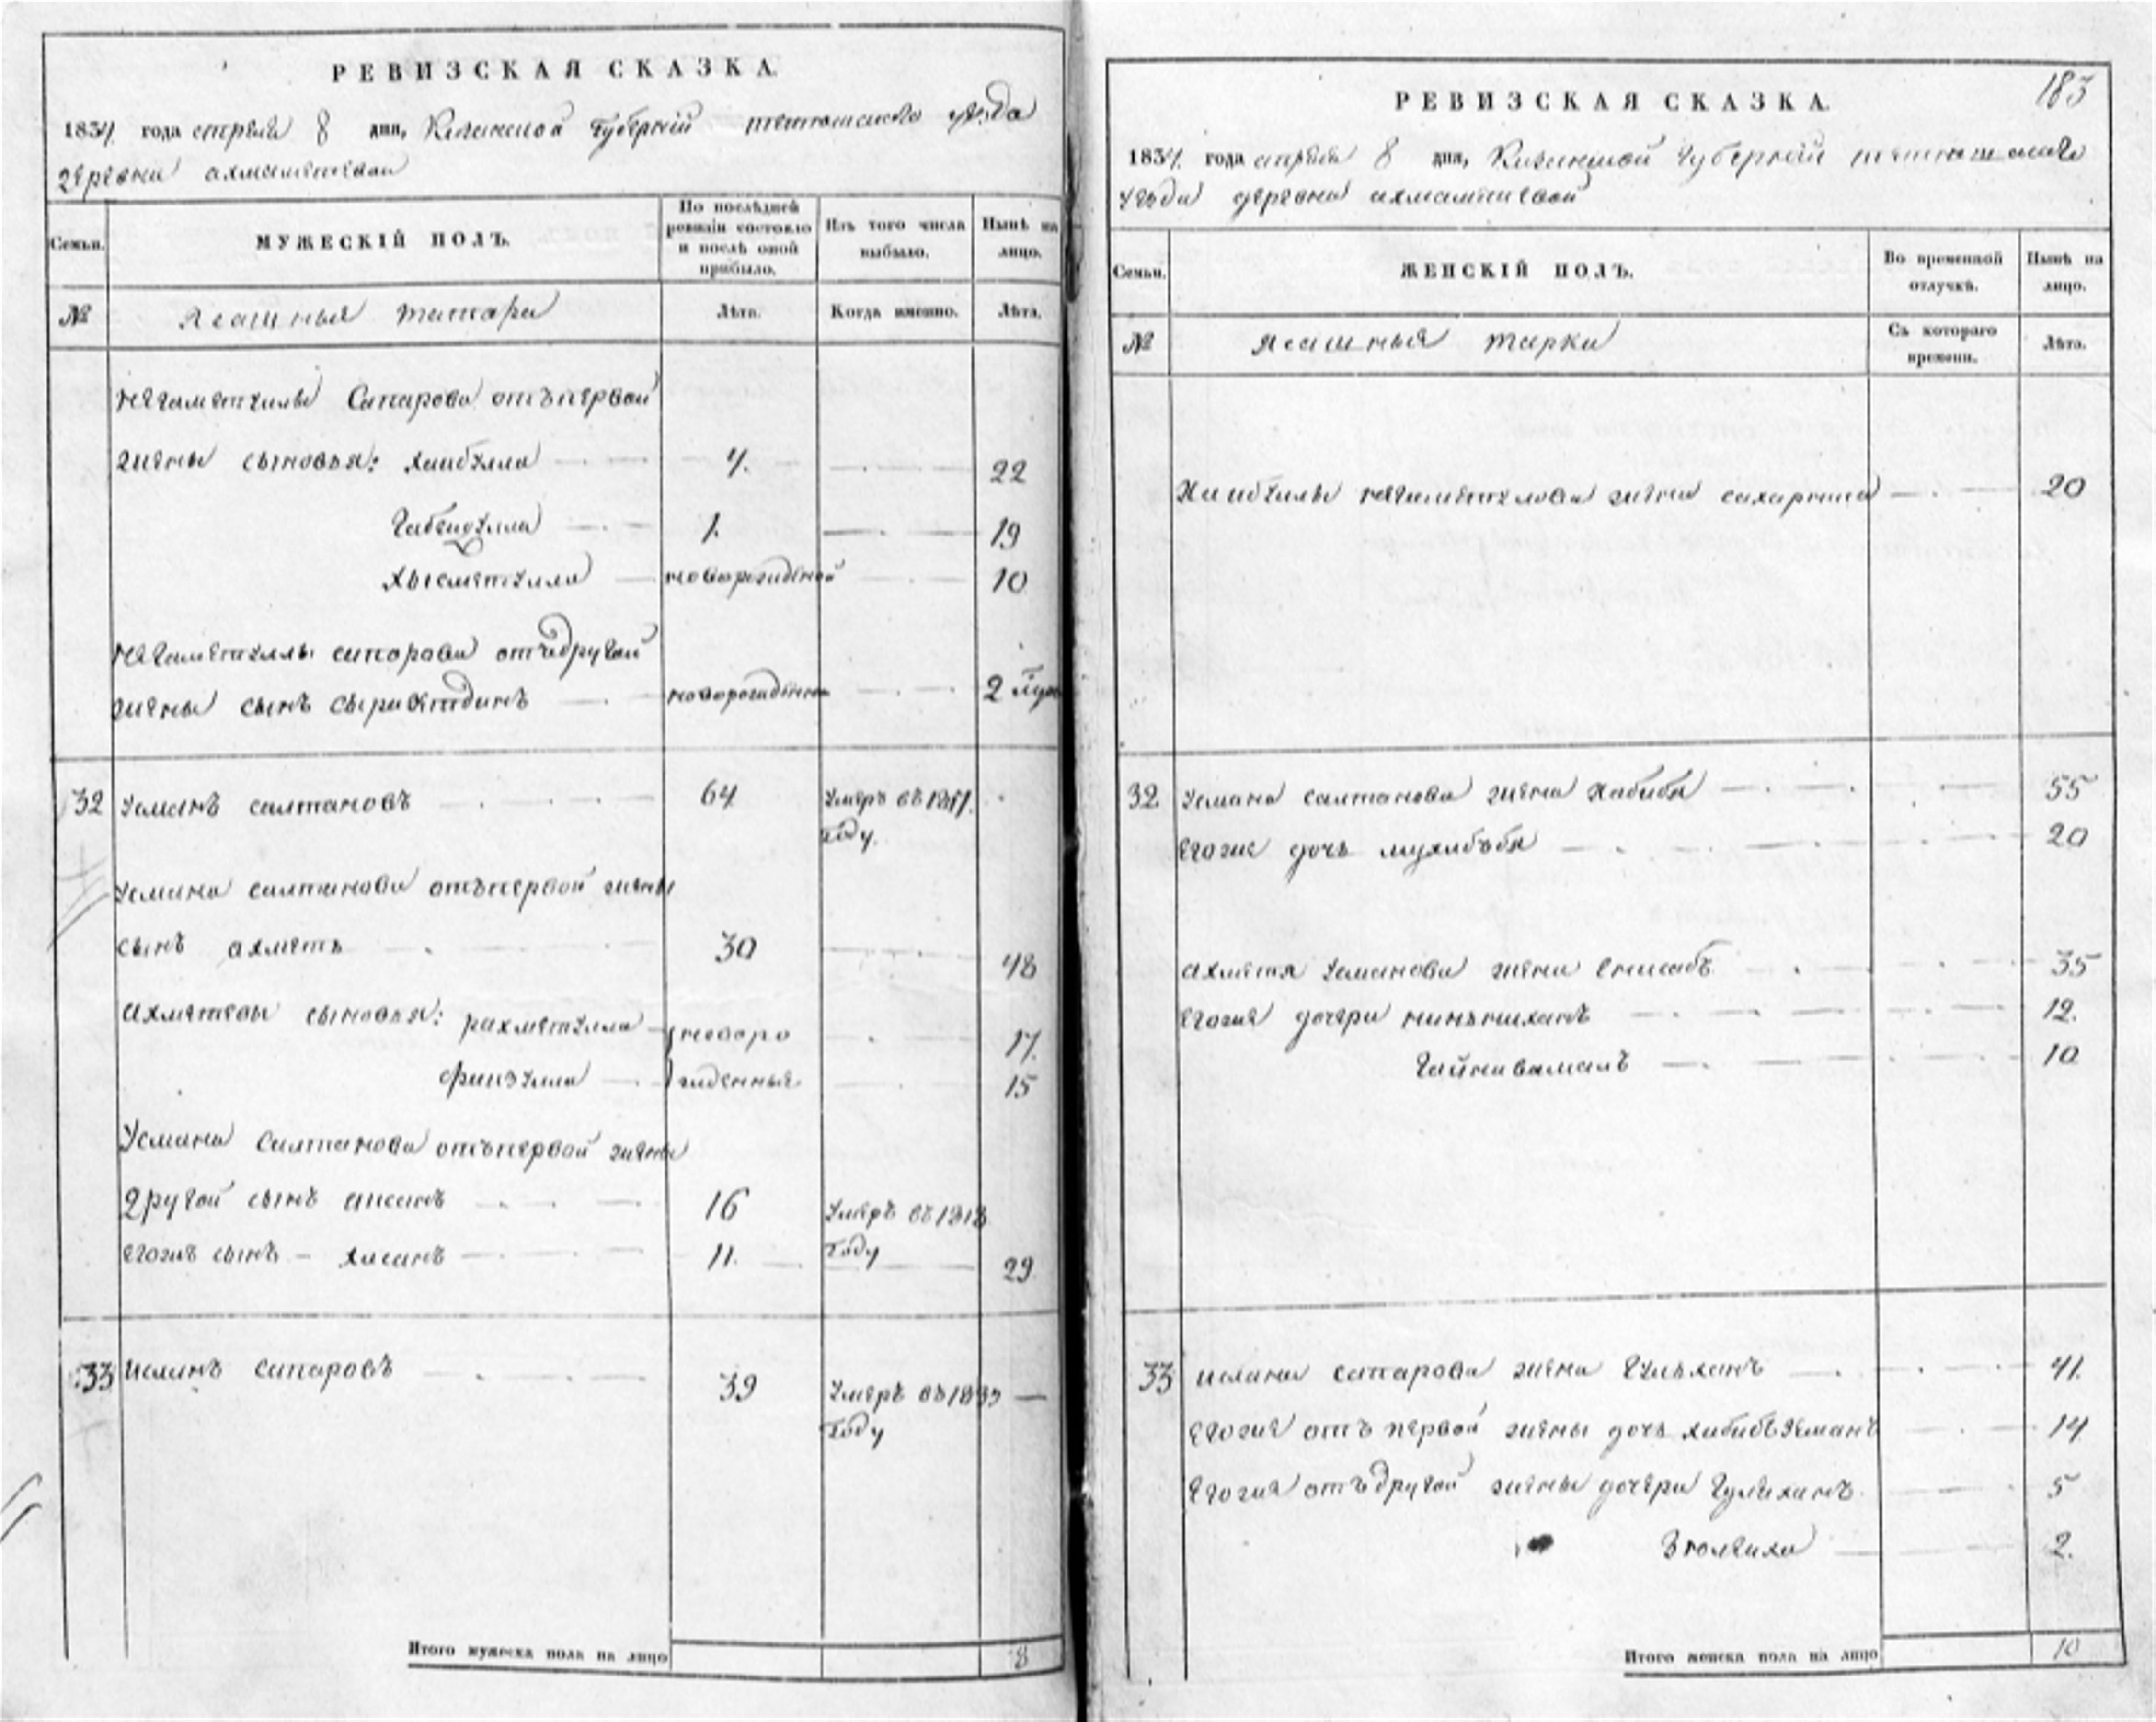 РЕВИЗСКАЯ СКАЗКА.
1834 года апреля 8 дня, Казанской губернии тетюшскаго уезда
деревни ахмаметевой
Семьи.
МУЖЕСКІЙ ПОЛЪ.
По послѣдней ревизіи состояло и послѣ оной прибыло.
Изъ того числа выбыло.
Нынѣ на лицо.
№
Ясашныя татары
Лѣта.
Когда именно.
Лѣта.
Негаметуллы Сапарова отъ первой
жены сыновья: Хаибулла 4. 22
Габейдулла 1. 19
Хысметулла новорожденой 10
Негаметуллы сапарова отъ другой
жены сынъ новорожденны 2
32 Усманъ салтановъ 64 Умеръ въ
году.
Усмана салтанова отъ первой жены
сынъ ахметъ 30 48
Ахметевы сыновья: рахметулла новоро 17.
фаизулла жденныя 15
Усмана Салтанова отъ первой жены
другой сынъ апсанъ 16 Умеръ въ 1818
году
Егожъ сынъ – хасанъ 11. 29
33 Исланъ сапаровъ 39 Умеръ въ 1833 —
году
Итого мужеска пола на лицо 8
183
РЕВИЗСКАЯ СКАЗКА.
1834. года апреля 8 дня, Казанской губерніи тетюшскаго
уезда деревни ахмаметевой
Семьи.
ЖЕНСКІЙ ПОЛЪ.
Во временной отлучкѣ.
Нынѣ на лицо.
№
Ясашныя тарки
Съ котораго времени.
Лѣта.
Хаибуллы негаметулова жена 20
32 Усмана салтанова жена Хабибя 55
Егоже дочь мухибъбя 20
ахметя Усманова жена 35
Егоже дочери 12.
10
33 ислана сапарова жена Гульханъ 41.
Егоже отъ первой жены дочь 14
Егоже отъ другой жены дочери Гулиханъ 5
2.
Итого женска пола на лицо 10